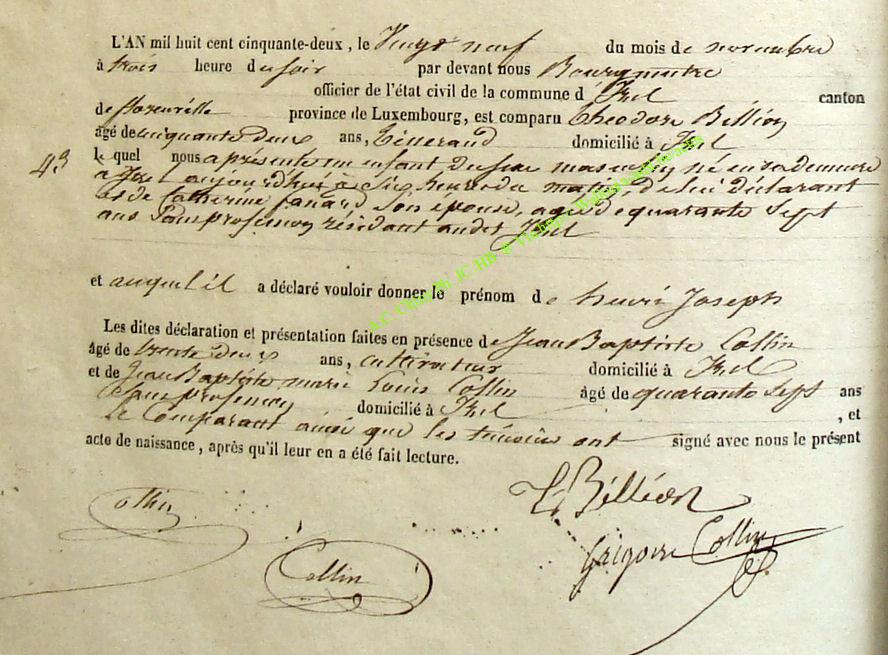 L'AN mil huit cent cinquante-deux, le Vingt neuf du mois de novembre
à trois heure du soir par devant nous Bourgmestre
officier de l'état civil de la commune d' Izel canton
de florenville province de Luxembourg, est comparu Théodore Belléon
âgé de cinquante deux ans, Tisserand domicilié à Izel
43 lequel nous a présenté un enfant du sexe masculin né en sa demeure
a Izel aujourd'hui à six heures du matin, de lui déclarant
et de Catherine fanard son épouse, agée de quarante sept
ans Sans profession résidant audit Izel
et auquel il a déclaré vouloir donner le prénom de henri Joseph
Les dites déclaration et présentation faites en présence de Jean Baptiste Collin
âgé de trente deux ans, cultivateur domicilié à Izel
et de Jean Baptiste marie Louis Collin âgé de quarante sept ans
sans profession domicilié à Izel , et
Le Comparant ainsi que les témoins ont signé avec nous le présent
acte de naissance, après qu'il leur en a été fait lecture.
T. Belléon
Collin
Grégoire Collin
Collin